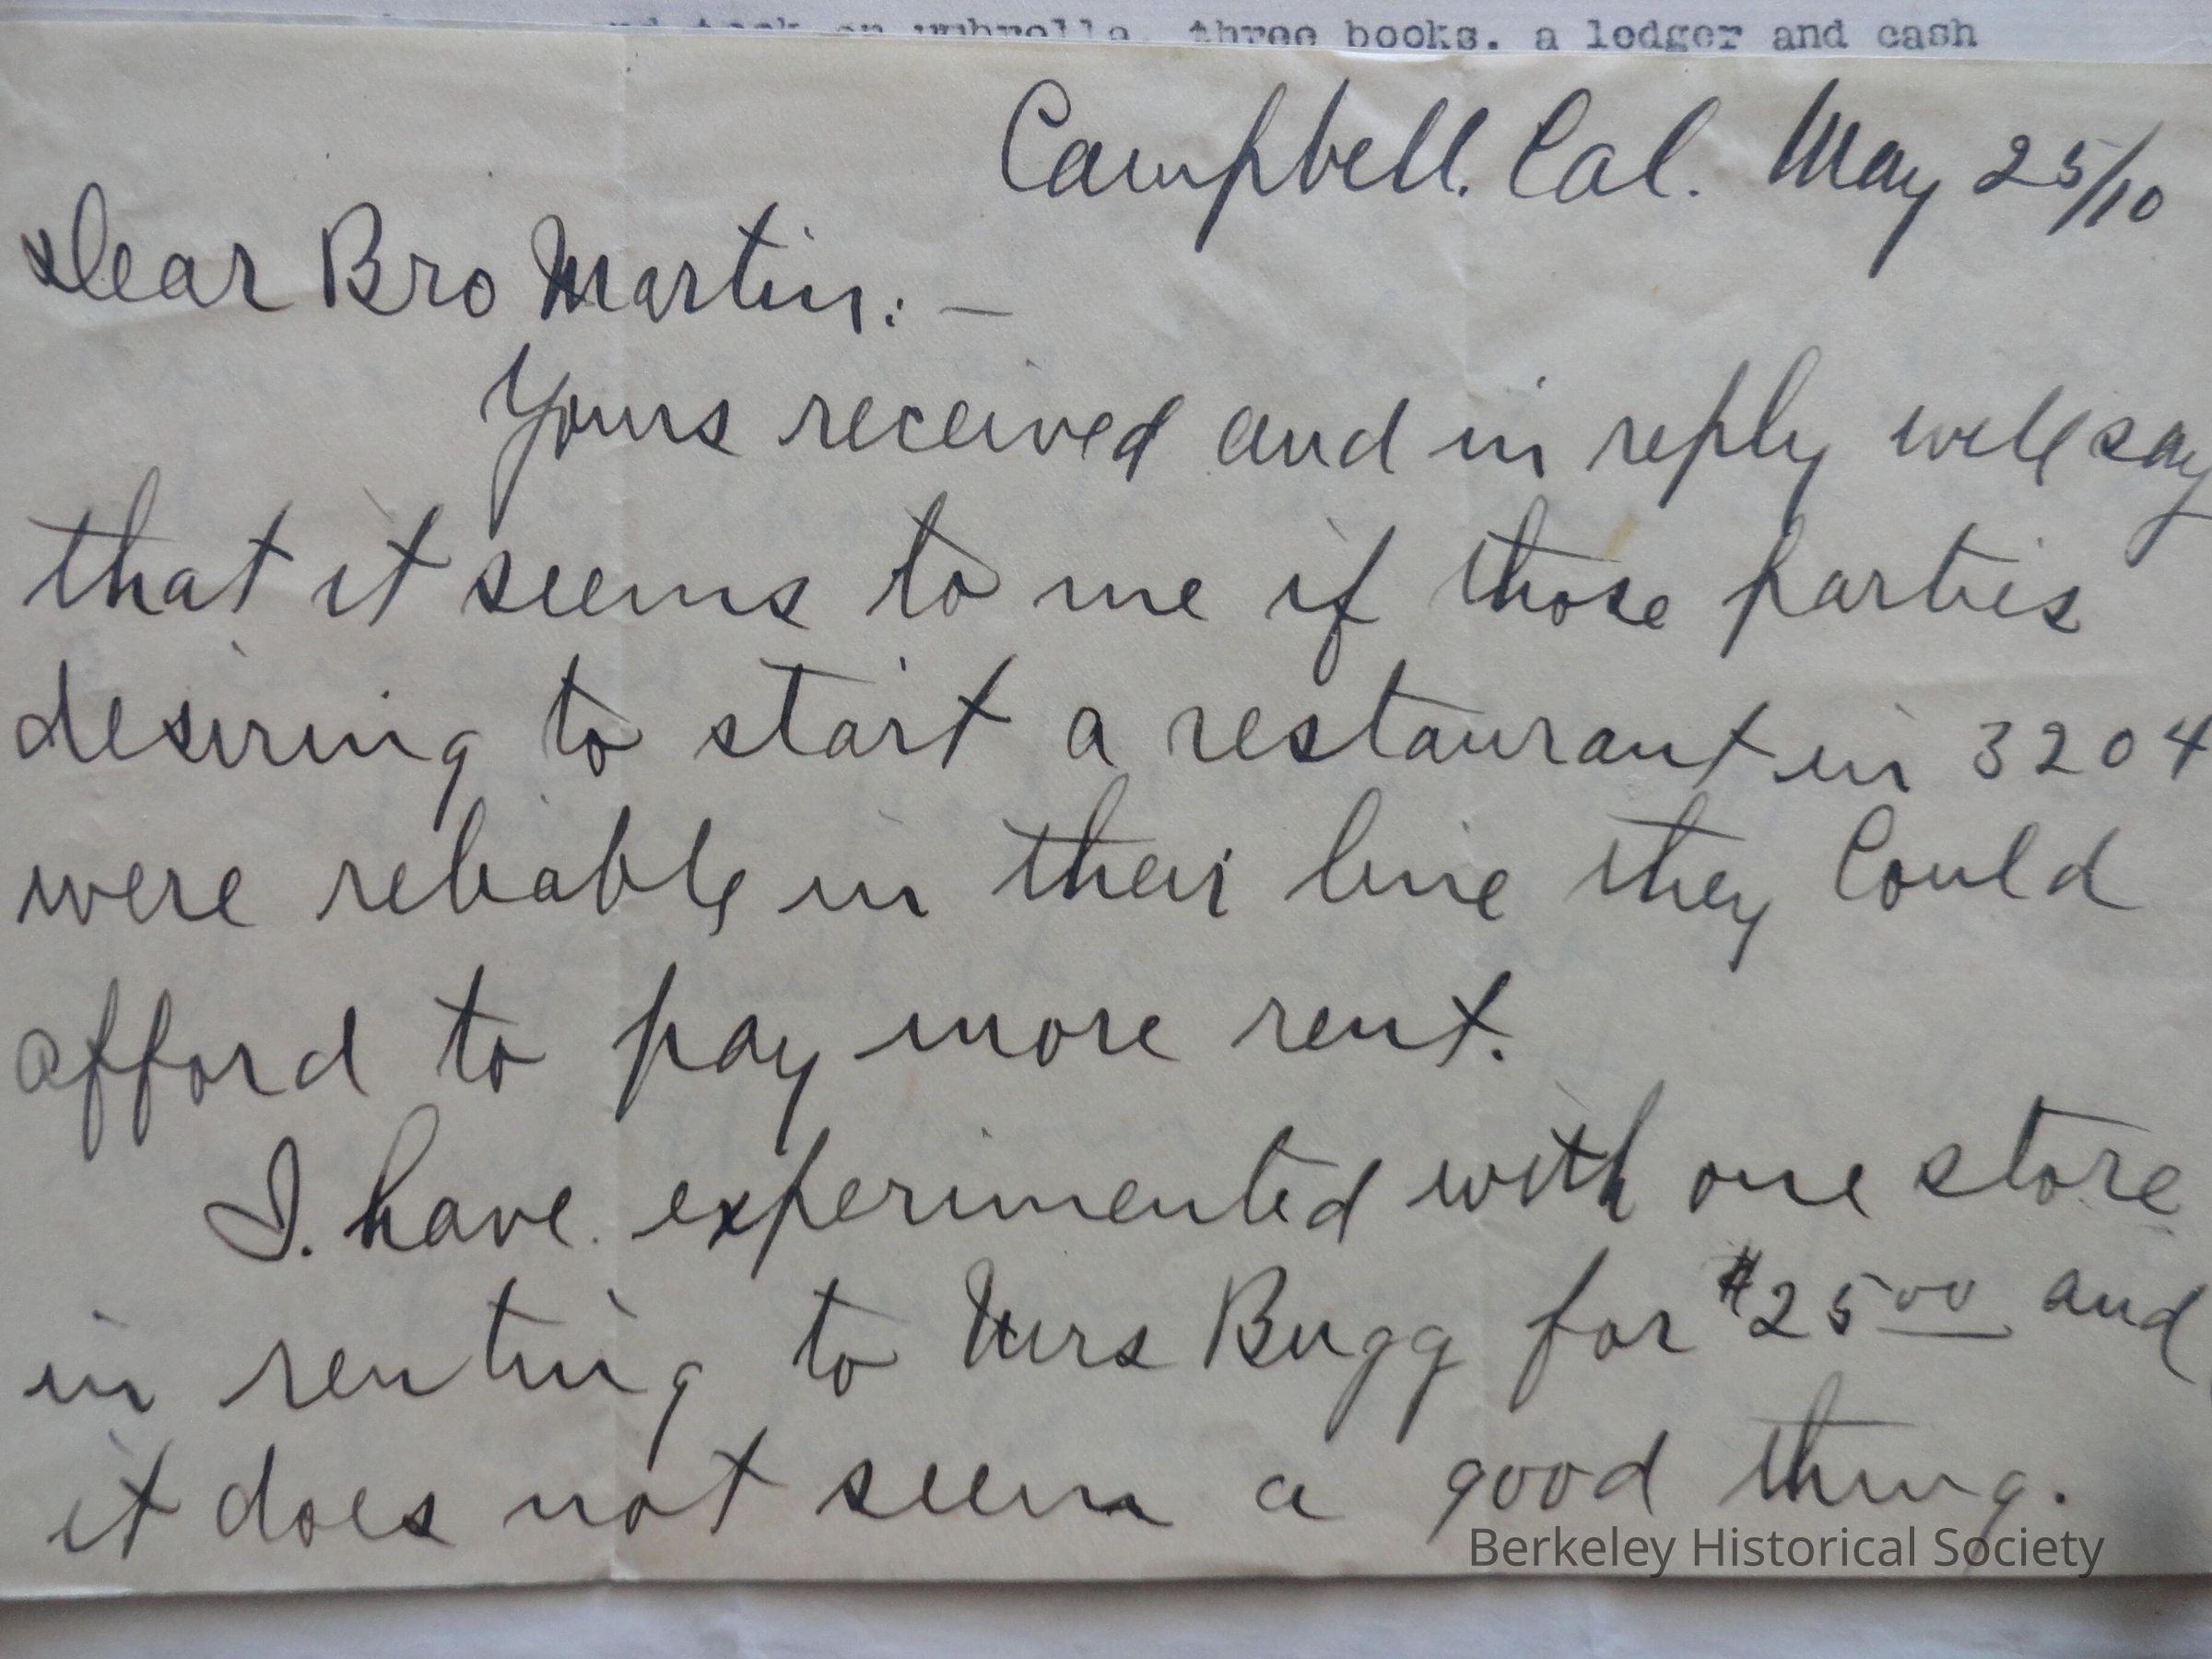 an umbrella, three books. a ledger and cash
Campbell. Cal. May 25/10
Dear Bro Martin: —
Yours received and in reply will say
that it seems to me if those parties
desiring to start a restaurant in 3204
were reliable in their line they Could
afford to pay more rent.
I. have experimented with one store
in renting to Mrs Bugg for $25 00 and
it does not seem a good thing.
Berkeley Historical Society